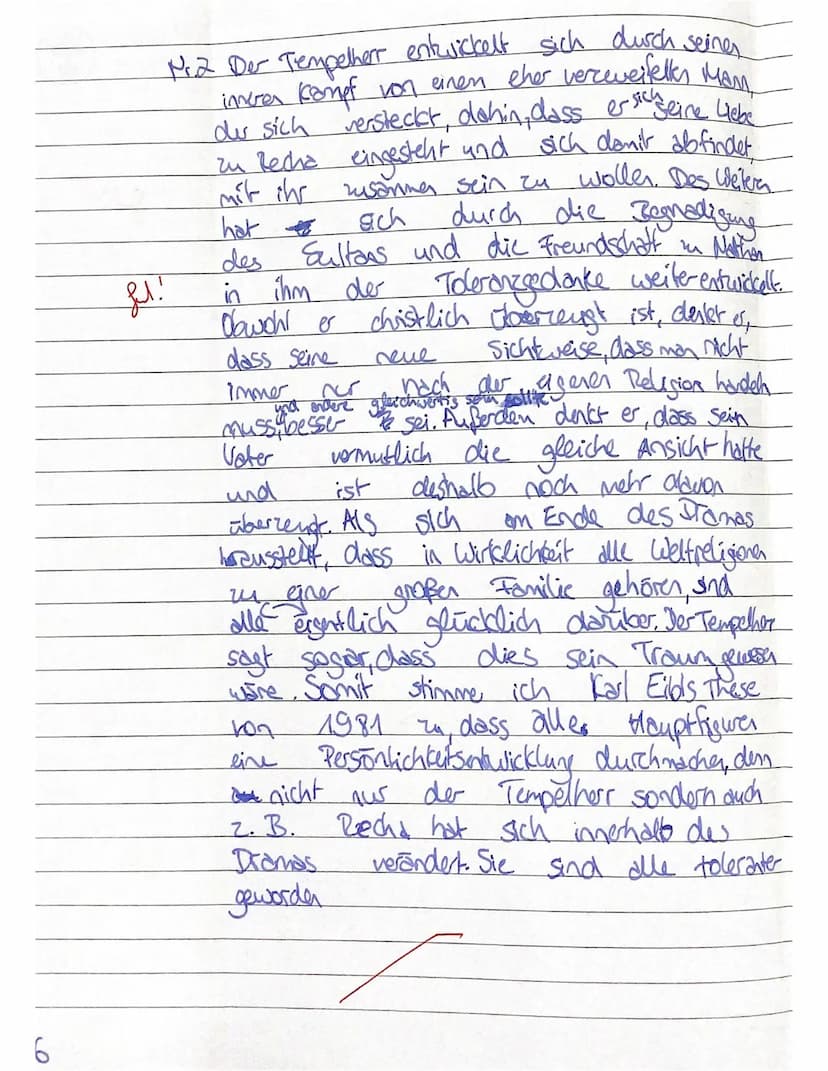 Nr.2 Der Tempelherr entwickelt sich durch seinen
inneren Kampf von einem eher verzweifelten Mann,
der sich versteckt, dahin, dass er sich seine Liebe
zu Recha eingesteht und sich damit abfindet,
mit ihr zusammen sein zu wollen. Des Weitern
hat sich durch die Begnadigung
des Sultans und die Freundschaft zu Nathan
gut!
in ihm der Toleranzgedanke weiterentwickelt.
Obwohl er christlich überzeugt ist, denkt er,
dass seine neue Sichtweise, dass man nicht
immer nur nach der eigenen Religion handeln
und andere gleichwertig sein sollte
muss, besser sei. Außerdem denkt er, dass sein
Vater vermutlich die gleiche Ansicht hatte
und ist deshalb noch mehr davon
überzeugt. Als sich am Ende des Dramas
herausstellt, dass in Wirklichkeit alle Weltreligionen
zu einer großen Familie gehören, sind
alle eigentlich glücklich darüber. Der Tempelherr
sagt sogar, dass dies sein Traum gewesen
wäre. Somit stimme ich Karl Eibls These
von 1981 zu, dass alle Hauptfiguren
eine Persönlichkeitsentwicklung durchmachen, denn
nicht nur der Tempelherr sondern auch
z. B. Recha hat sich innerhalb des
Dramas verändert. Sie sind alle toleranter
geworden
6